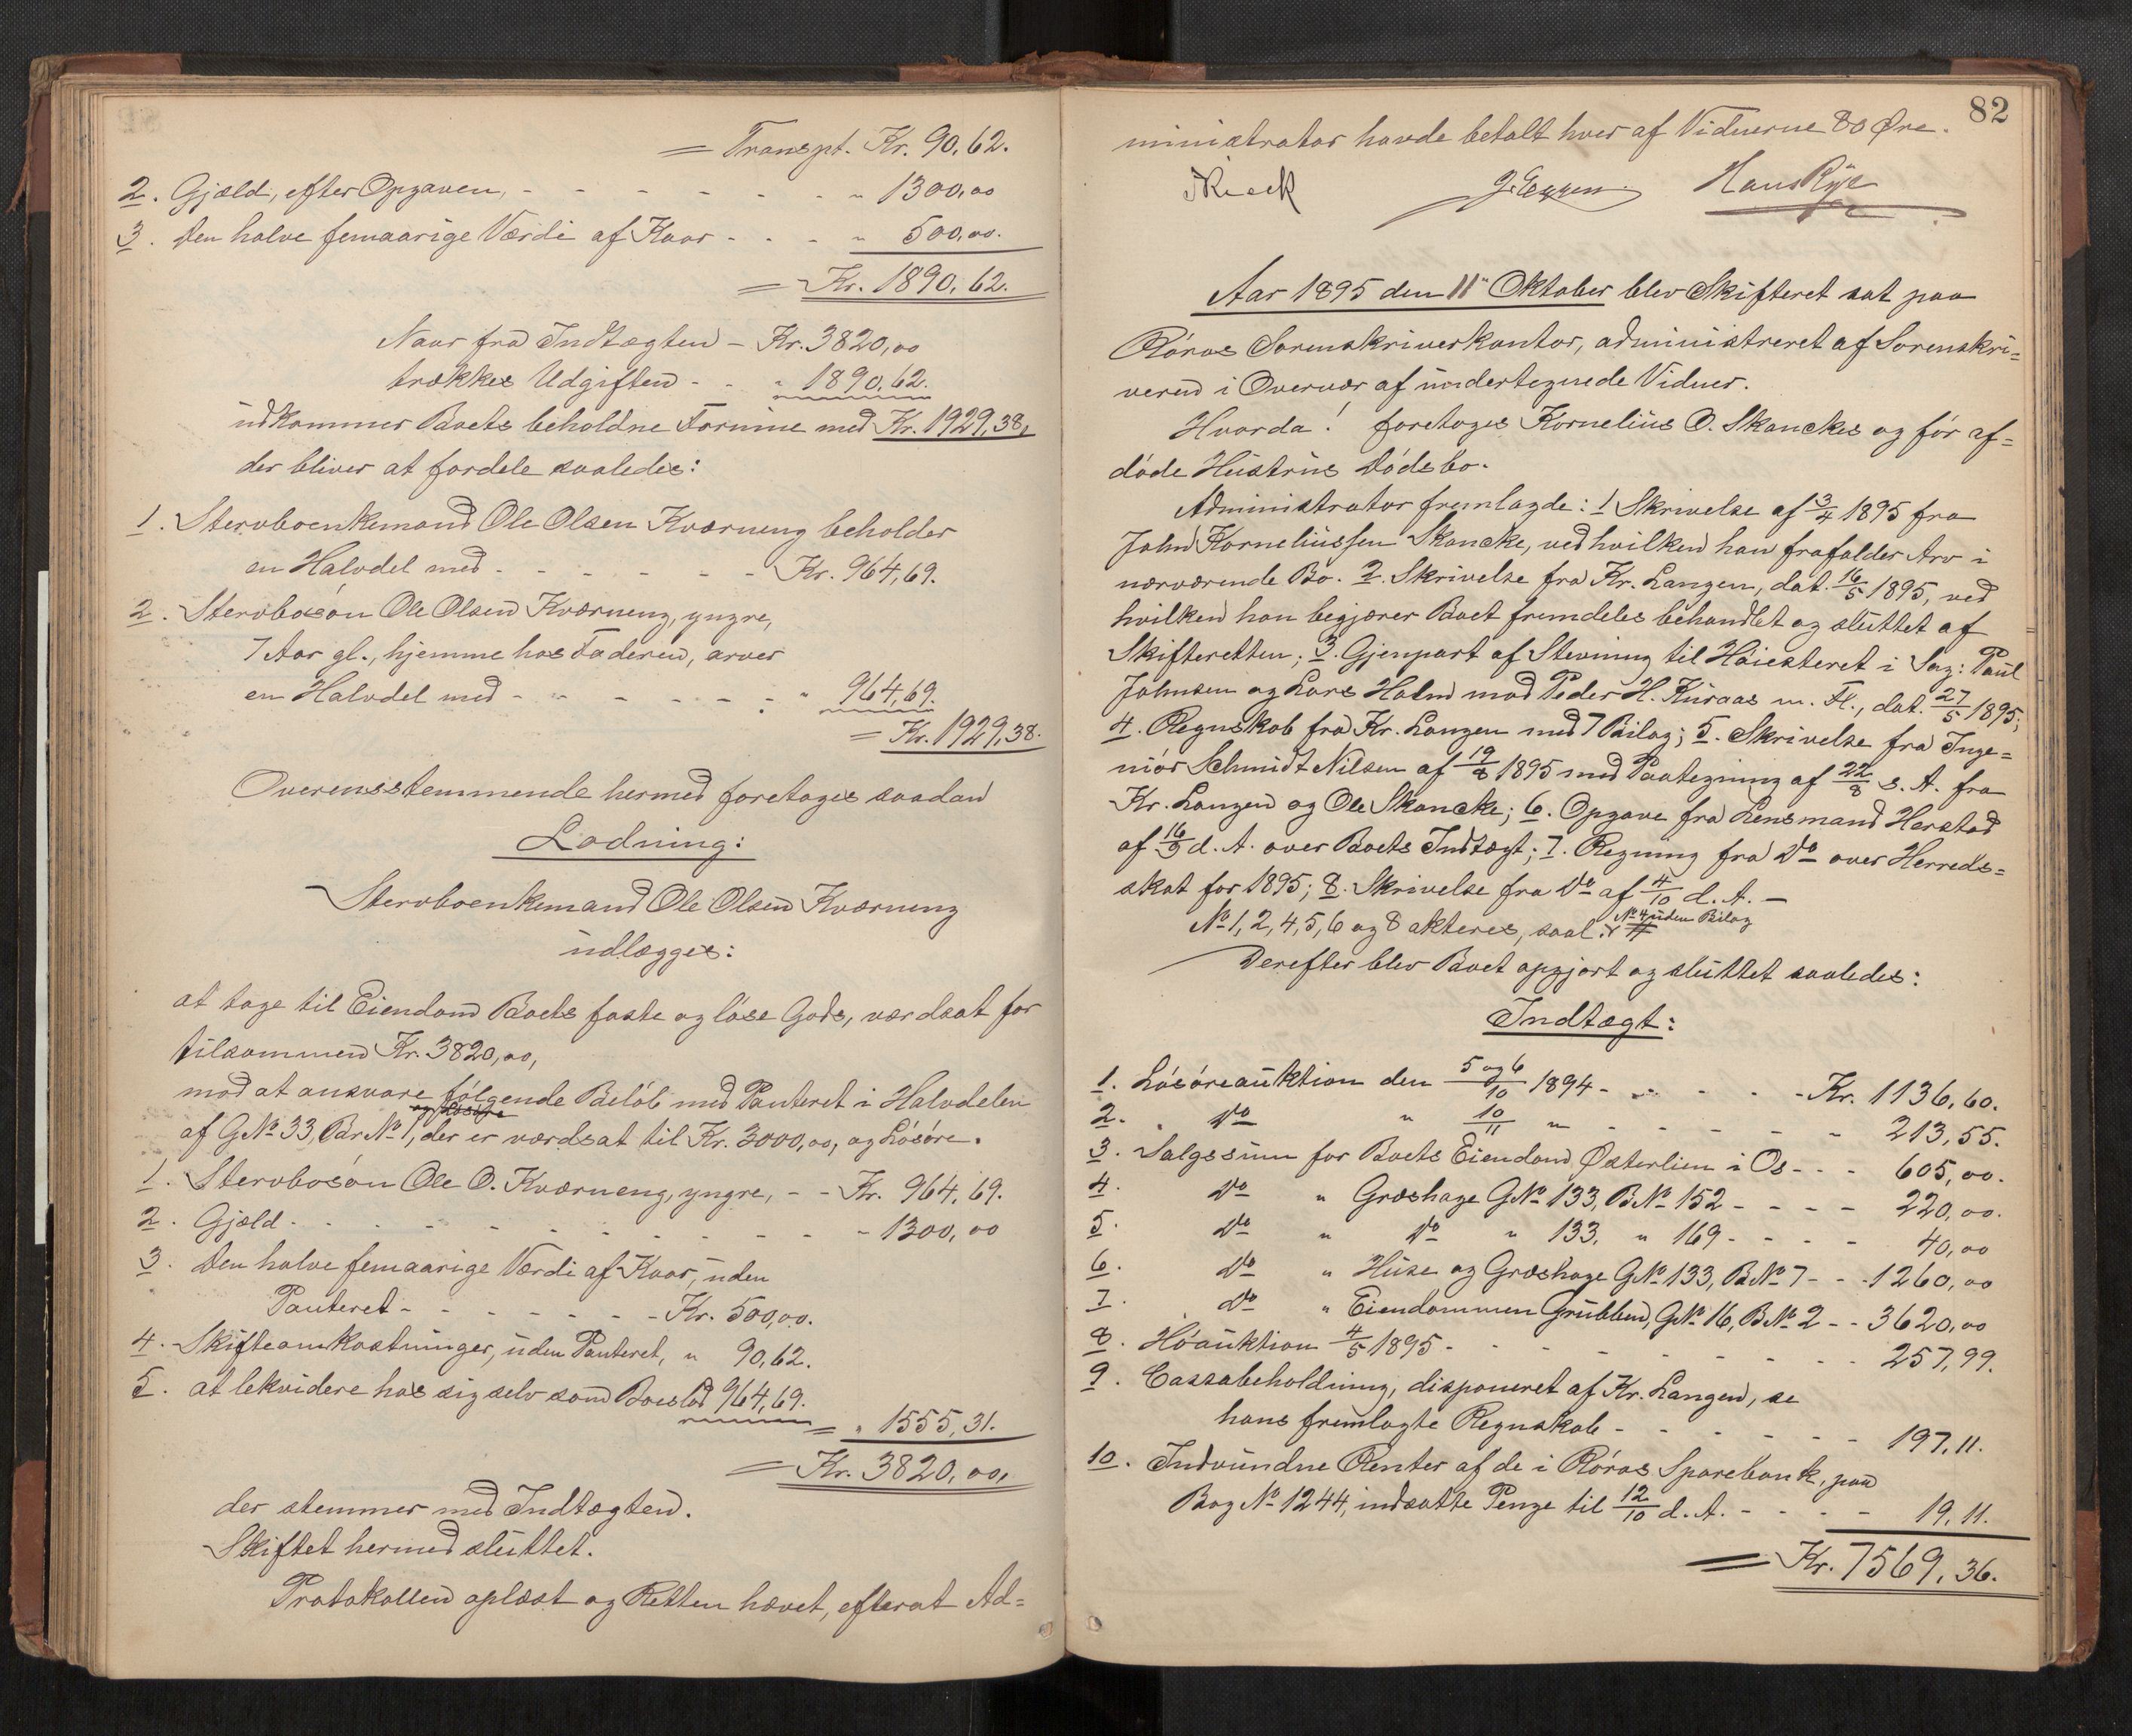 = Transpt. Kr. 90,62.
2. Gjæld, efter Opgaven, - - - - - - " 1300,00
3. Den halve femaarige Værdi af Kaar - - - " 500,00.
= Kr. 1890,62.
Naar fra Indtægten - Kr. 3820,00
trækkes Udgiften - - " 1890,62.
udkommer Boets beholdne Formue med Kr. 1929,38,
der bliver at fordele saaledes:
1. Stervboenkemand Ole Olsen Kværneng beholder
en Halvdel med - - - - - - Kr. 964,69.
2. Stervbosøn Ole Olsen Kværneng, yngre,
7 Aar gl., hjemme hos Faderen, arver
en Halvdel med - - - - - - " 964,69.
= Kr. 1929,38.
Overensstemmende hermed foretages saadan
Lodning:
Stervboenkemand Ole Olsen Kværneng
udlægges:
at tage til Eiendom Boets faste og løse Gods, værdsat for
tilsammen Kr. 3820,00,
mod at ansvare følgende Beløb med Panteret i Halvdelen
af G.No. 33, Br.No. 1, der er værdsat til Kr. 3000,00, og Løsøre.
1. Stervbosøn Ole O. Kværneng, yngre, - - Kr. 964,69.
2. Gjæld - - - - - - - - - - - 1300,00
3. Den halve femaarige Værdi af Kaar, uden
Panteret - - - - - - - Kr. 500,00.
4. Skifteomkostninger, uden Panteret, " 90,62.
5. at lekvidere hos sig selv som Boeslod 964,69.
= " 1555,31.
= Kr. 3820,00,
der stemmer med Indtægten.
Skiftet hermed sluttet.
Protokollen oplæst og Retten hævet, efterat Ad=
82
ministrator havde betalt hver af Vidnerne 80 Øre.
Hans Rye
Aar 1895 den 11te Oktober blev Skifteret sat paa
Røros Sorenskriverkontor, administreret af Sorenskri=
veren i Overvær af undertegnede Vidner.
Hvorda! foretoges Kornelius O. Skanckes og før af=
døde Hustrus Dødsbo.
Administrator fremlagde: 1 Skrivelse af 3/4 1895 fra
John Korneliussen Skancke, ved hvilken han frafalder Arv i
nærværende Bo. 2. Skrivelse fra Kr. Langen, dat. 16/5 1895, ved
hvilken han begjærer Boet fremdeles behandlet og sluttet af
Skifteretten; 3. Gjenpart af Stevning til Høiesteret i Sag: Paul
Johnsen og Lars Holm mod Peder H. Kuraas m. Fl., dat. 27/5 1895;
4. Regnskab fra Kr. Langen med 7 Bilag; 5. Skrivelse fra Inge=
niør Schmidt Nilsen af 19/8 1895 med Paategning af 22/8 s. A. fra
Kr. Langen og Ole Skancke; 6. Opgave fra Lensmand Herstad
af 16/9 d. A. over Boets Indtægt; 7. Regning fra Do over Herreds=
skat for 1895; 8. Skrivelse fra Do af 4/10 d. A. -
No 1, 2, 4, 5, 6 og 8 akteres, saal. No 4 uden Bilag
Derefter blev Boet opgjort og sluttet saaledes:
Indtægt:
1. Løsøreauktion den 5 og 6/10 1894 - - - - Kr. 1136,60.
2. Do " 10/11 " - - - - - - 213,55.
3. Salgssum for Boets Eiendom Østerlien i Os - - - 605,00.
4. Do " Græshage G.No 133, B.No 152 - - - - 220,00.
5. Do " Do " 133, " 169 - - - - 40,00
6. Do " Huse og Græshage G.No 133, B.No 7 - - - 1260,00
7. Do " Eiendommen Grubben, G.No 16, B.No 2 - - 3620,00
8. Høauktion 4/5 1895 - - - - - - - - - 257,99.
9. Cassabeholdning, disponeret af Kr. Langen, se
hans fremlagte Regnskab - - - - - - 197,11.
10. Indvundne Renter af de i Røros Sparebank, paa
Bog No 1244, indsatte Penge til 12/10 d. A. - - - - 19,11.
= Kr. 7569,36.